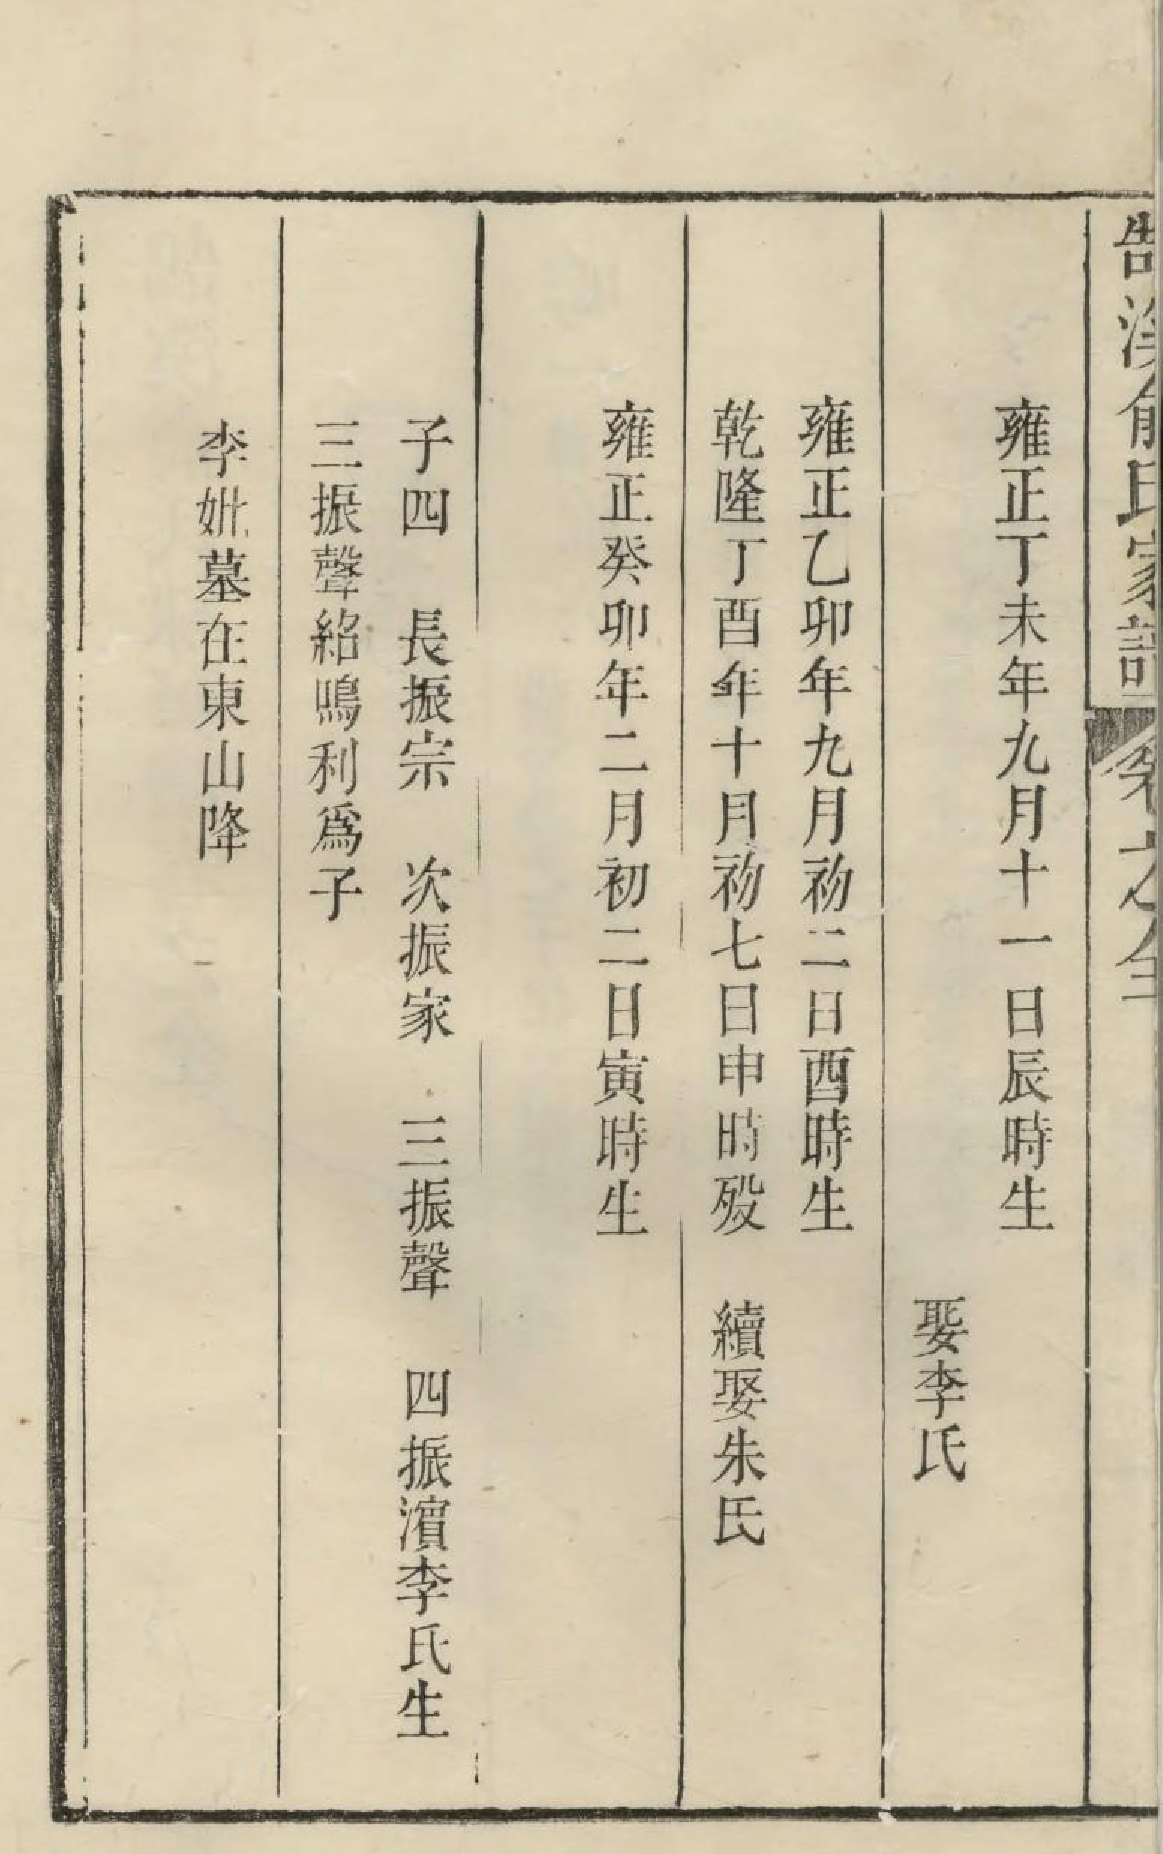 浩溪俞氏家譜 卷之全
雍正丁未年九月十一日辰時生
娶李氏
雍正乙卯年九月初二日酉時生
乾隆丁酉年十月初七日申時殁 續娶朱氏
雍正癸卯年二月初二日寅時生
子四 長振宗 次振家 三振聲 四振濵李氏生
三振聲紹鳴利爲子
李妣墓在東山降